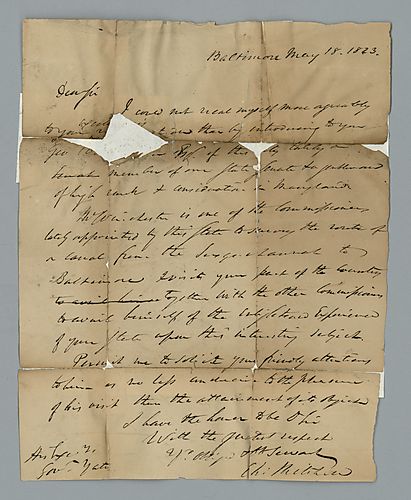 Baltimore May 18. 1823.
Dear Sir
I could not avail myself more agreeably
to your than by introducing to you
Geo Esqr of this City lately a
Senate member of our State Senate & a gentleman
of high rank & consideration in Maryland
Mr Winchester is one of the Commissioners
lately appointed by this State to survey the route of
a canal from the Susquehannah to
Baltimore & visits your part of the Country
to avail himse together with the other Commissioners
to avail himself of the enlightened experience
of your State upon this interesting subject.
Permit me to solicit your friendly attentions
to him as no less conducive to the pleasure
of his visit than the advancement of its objects
I have the honor to be Sir
With the greatest respect
Yr Obligd & Ob Servant
His Excy
Govr Yates